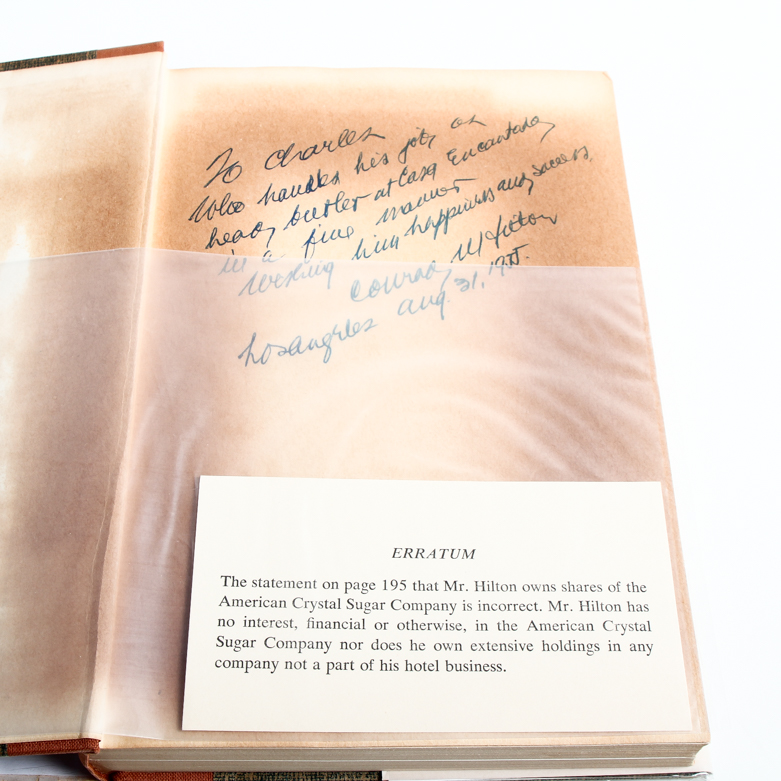 To Charles
Who handles his job, as
head butler at Casa Encantada,
in a fine manner
Wishing him happiness and success,
Conrad N Hilton
Los angeles aug. 31, 1955.
ERRATUM
The statement on page 195 that Mr. Hilton owns shares of the
American Crystal Sugar Company is incorrect. Mr. Hilton has
no interest, financial or otherwise, in the American Crystal
Sugar Company nor does he own extensive holdings in any
company not a part of his hotel business.